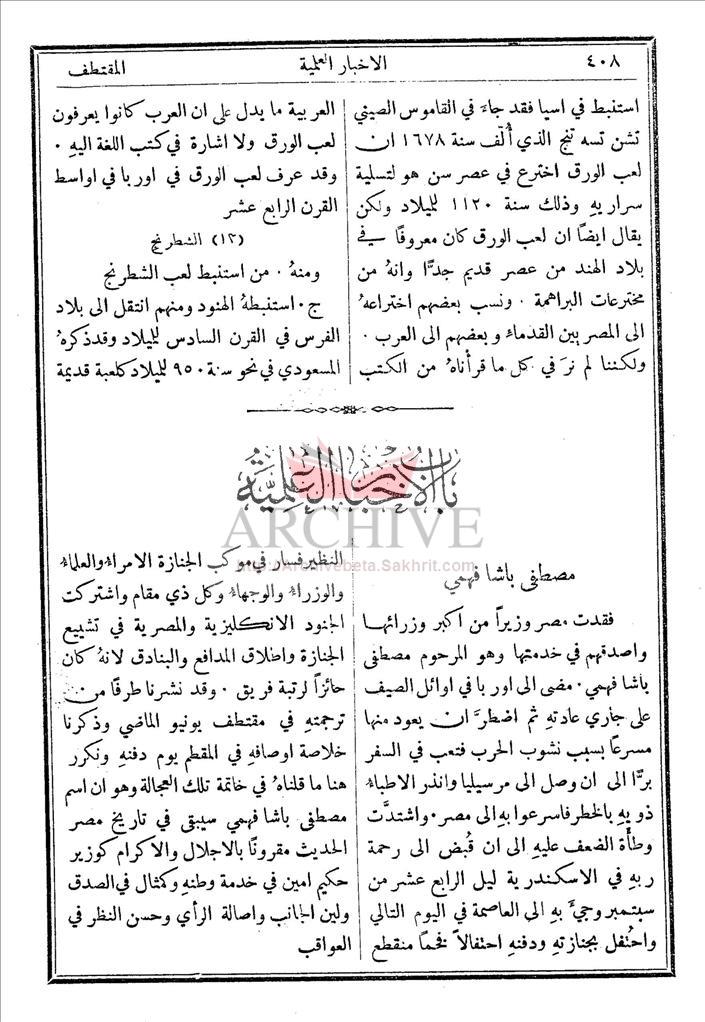 ٤٠٨
الاخبار العلمية
المقتطف
استنبط في اسيا فقد جاءَ في القاموس الصيني
تشن تسه تنج الذي أُلّف سنة ١٦٧٨ ان
لعب الورق اخترع في عصر سن هو لتسلية
سراريهِ وذلك سنة ١١٢٠ للميلاد ولكن
يقال ايضاً ان لعب الورق كان معروفاً في
بلاد الهند من عصر قديم جدًّا وانهُ من
مخترعات البراهمة . ونسب بعضهم اختراعهُ
الى المصر بين القدماء وبعضهم الى العرب .
ولكننا لم نرَ في كل ما قرأناهُ من الكتب
العربية ما يدل على ان العرب كانوا يعرفون
لعب الورق ولا اشارة في كتب اللغة اليهِ .
وقد عرف لعب الورق في اوربا في اواسط
القرن الرابع عشر
(١٢) الشطرنج
ومنهُ . من استنبط لعب الشطرنج
ج . استنبطهُ الهنود ومنهم انتقل الى بلاد
الفرس في القرن السادس للميلاد وقد ذكرهُ
المسعودي في نحو سنة ٩٥٠ للميلاد كلعبة قديمة
باب الاخبار العلمية
ARCHIVE
Archivebeta.Sakhrit.com
مصطفى باشا فهمي
فقدت مصر وزيراً من اكبر وزرائها
واصدقهم في خدمتها وهو المرحوم مصطفى
باشا فهمي . مضى الى اوربا في اوائل الصيف
على جاري عادتهِ ثم اضطرَّ ان يعود منها
مسرعاً بسبب نشوب الحرب فتعب في السفر
برًّا الى ان وصل الى مرسيليا وانذر الاطباءُ
ذويهِ بالخطر فاسرعوا بهِ الى مصر . واشتدَّت
وطأة الضعف عليهِ الى ان قُبض الى رحمة
ربهِ في الاسكندرية ليل الرابع عشر من
سبتمبر وجيءَ بهِ الى العاصمة في اليوم التالي
واحتُفل بجنازتهِ ودفنهِ احتفالاً فخماً منقطع
النظير فسار في موكب الجنازة الامراءُ والعلماءُ
والوزراءُ والوجهاءُ وكل ذي مقام واشتركت
الجنود الانكليزية والمصرية في تشييع
الجنازة واطلاق المدافع والبنادق لانهُ كان
حائزاً لرتبة فريق . وقد نشرنا طرفاً من
ترجمتهِ في مقتطف يونيو الماضي وذكرنا
خلاصة اوصافهِ في المقطم يوم دفنهِ ونكرر
هنا ما قلناهُ في خاتمة تلك العجالة وهو ان اسم
مصطفى باشا فهمي سيبقى في تاريخ مصر
الحديث مقروناً بالاجلال والاكرام كوزير
حكيم امين في خدمة وطنهِ وكمثال في الصدق
ولين الجانب واصالة الرأي وحسن النظر في
العواقب